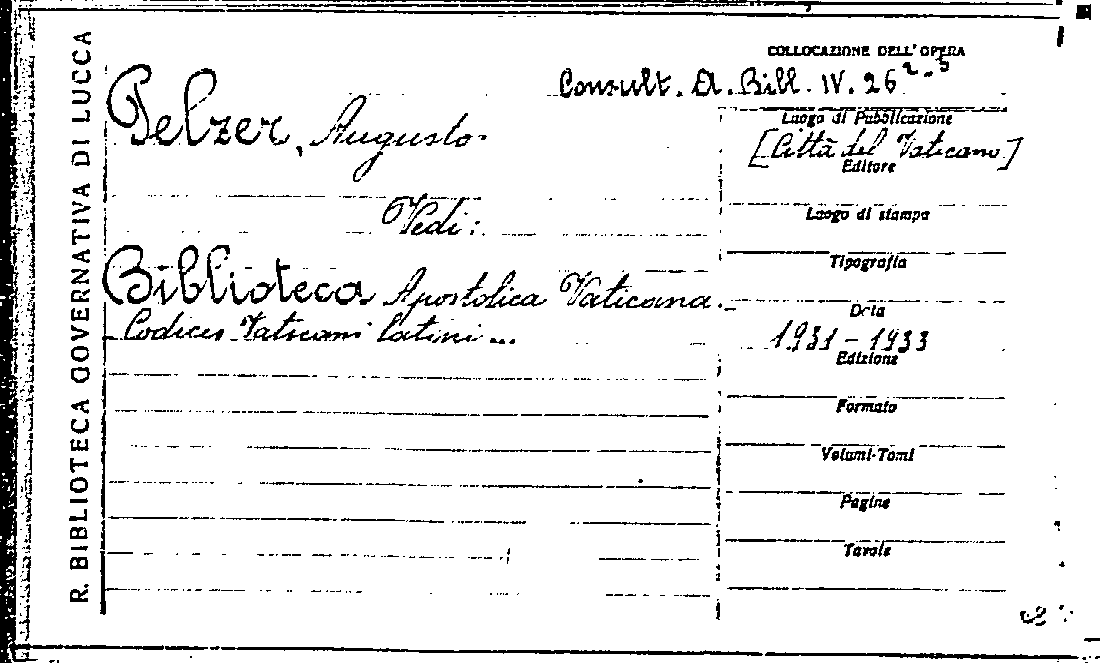 R. BIBLIOTECA GOVERNATIVA DI LUCCA
COLLOCAZIONE DELL'OPERA
Consult. A. Bibl. IV. 26 2-3
Pelzer, Augusto.
Vedi:
Biblioteca Apostolica Vaticana.
Codices Vaticani latini...
Luogo di Pubblicazione
[Città del Vaticano]
Editore
Luogo di stampa
Tipografia
Data
1931-1933
Edizione
Formato
Volumi-Tomi
Pagine
Tavole